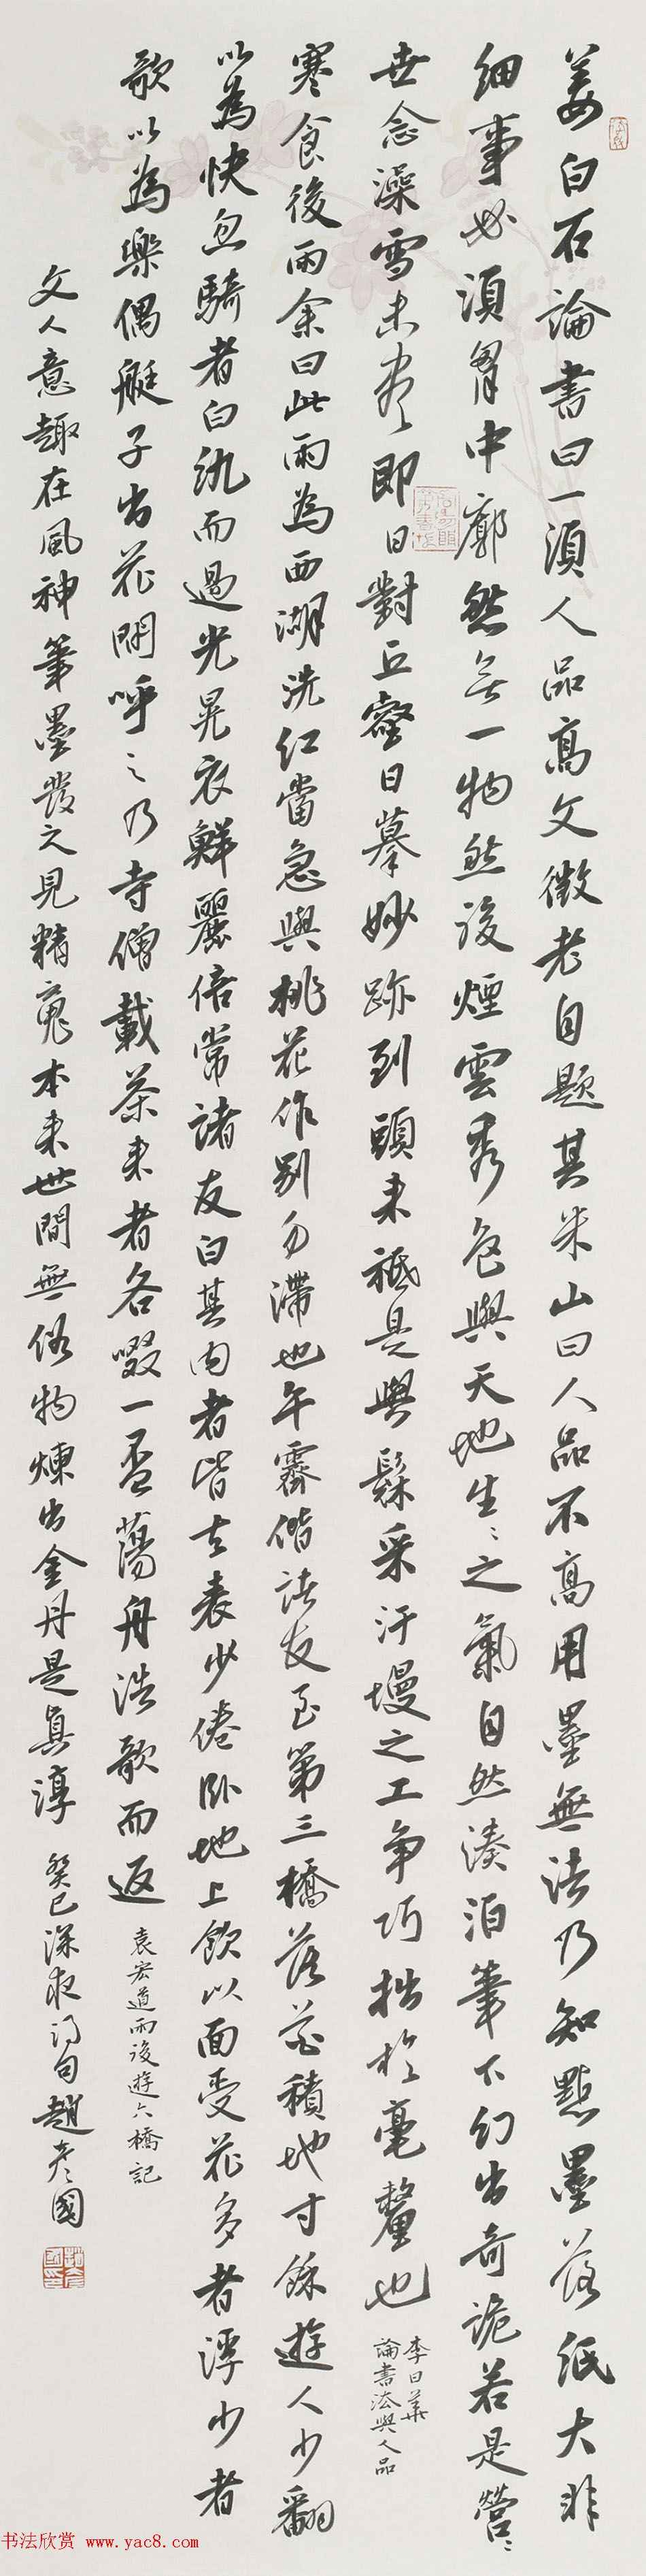 姜白石論書曰一須人品高文徵老自題其米山曰人品不高用墨無法乃知點墨落紙大非
細事必須胷中廓然無一物然後煙雲秀色與天地生〻之氣自然湊泊筆下幻出奇詭若是營〻
世念澡雪未盡即日對丘壑日摹妙跡到頭未祗是與髹采汙墁之工争巧拙於毫釐也
李日華
論書法與人品
寒食後雨余曰此雨為西湖洗红當急與桃花作别勿滯也午霽偕諸友至第三橋落花積地寸餘遊人少翻
以為快忽騎者白紈而過光晃衣鮮麗倍常諸友白其内者皆去表少倦卧地上飲以面受花多者浮少者
歌以為樂偶艇子出花間呼之乃寺僧載茶来者各啜一盃蕩舟浩歌而返
袁宏道雨後遊六橋記
文人意趣在風神筆墨發之見精䰟本来世間無俗物煉出金丹是真淳
癸巳深夜得句趙彦國
书法欣赏 www.yac8.com